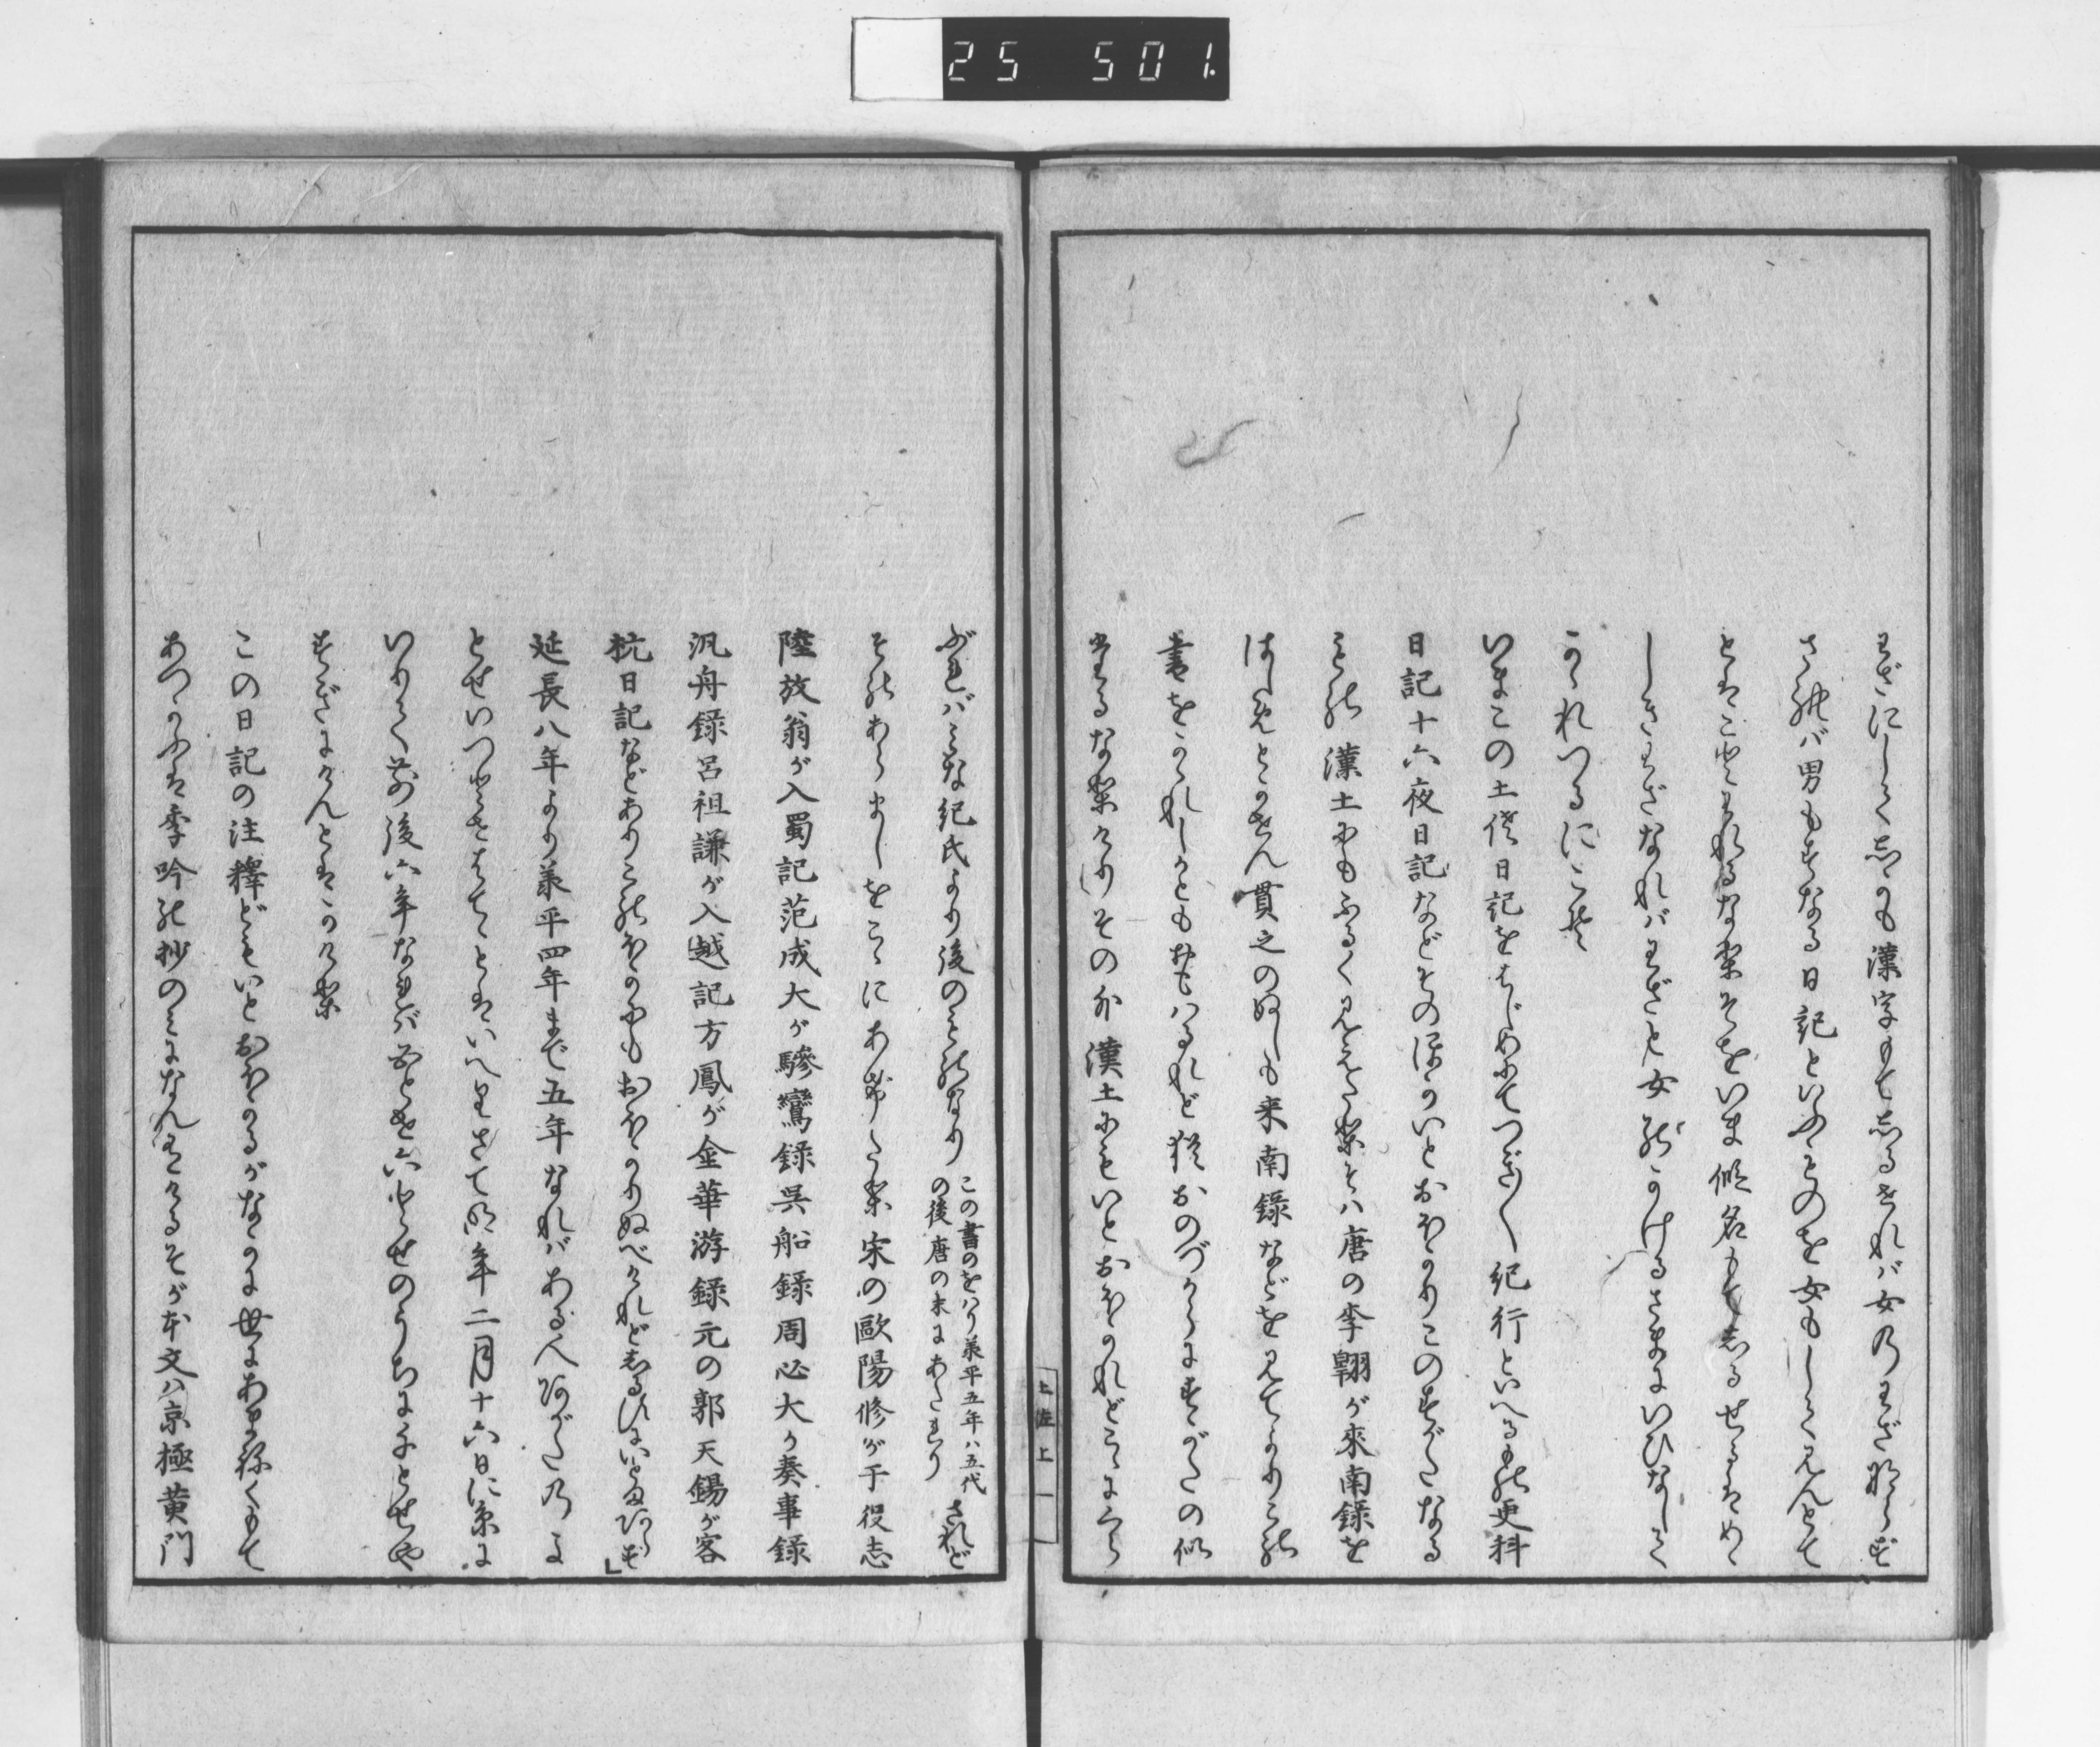 25 501.
わざにしてしかも漢字もて志るされバ女乃わざならず
されバ男もすなる日記といふものを女もして見んとて
とはことわれるなりそをいま假名もて志るせるはめづ
しきわざなればわざと女のかけるさまにいひなして
かゝれつるにこそ
いまこの土佐日記をはじめにてつぎ〳〵紀行といへるもの更科
日記十六夜日記などそのほかいとおほかりこのすがたなる
もの漢土にもふるく見えたりそハ唐の李翶が來南録を
はじめとかせん貫之のぬしも来南録などを見てよりこの
書をかゝれしかともおもハるれど猶おのづからにすがたの似
たるなりけりその外漢土にもいとおほかれどこゝにいら
土佐上 一
ぶればみな紀氏より後のものなり この書のをハり承平五年ハ五代
の後唐の末にあたれり されど
そのあらましをこゝにあげたり宋の歐陽修が于役志
陸放翁が入蜀記范成大が驂鸞録呉船録周必大が奏事録
汎舟録呂祖謙が入越記方鳳が金華游録元の郭天錫が客
杭日記などありこのほかにもおほかりぬべけれど志るすにいとまあらず」
延長八年より承平四年まで五年なればある人あがたのよ
とせいつとせはてゝとはいへりさて明年二月十六日に京に
いりて前後六年なればいつとせ六とせのうちに千とせや
すぎにけんとはかけり
この日記の注釋どもいとおほかるがなかに世にあまねくもて
あつかふは季吟の抄のみになんありけるそが本文ハ京極黄門